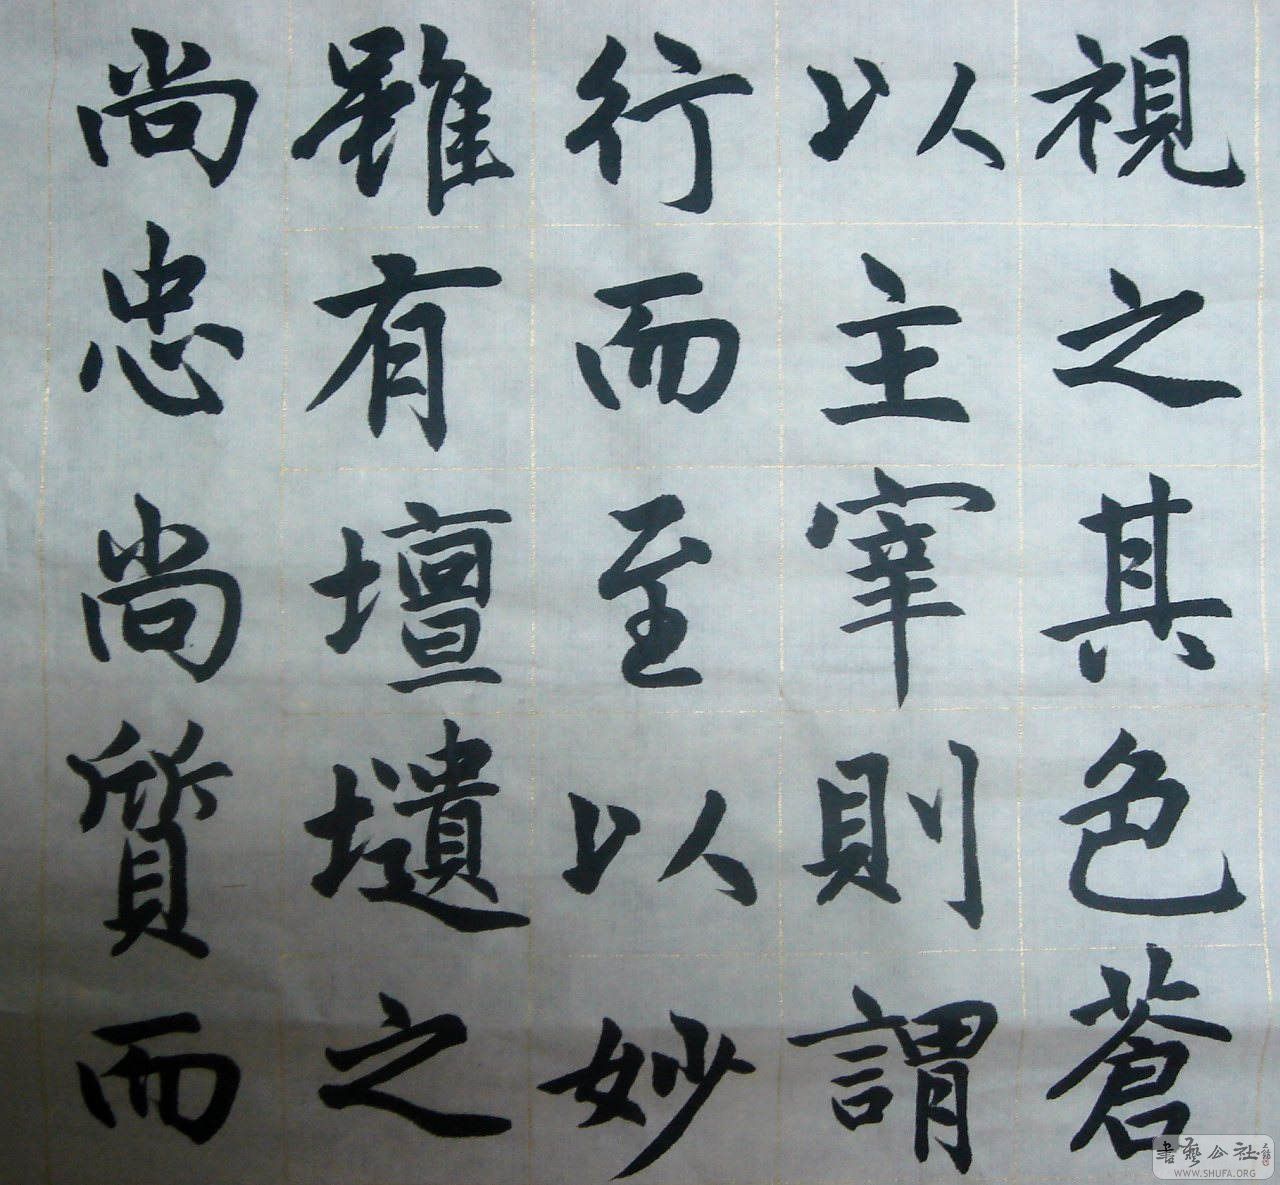 視之其色蒼
以主宰則謂
行而至以妙
雖有壇壝之
尚忠尚質而
書藝公社
WWW.SHUFA.ORG